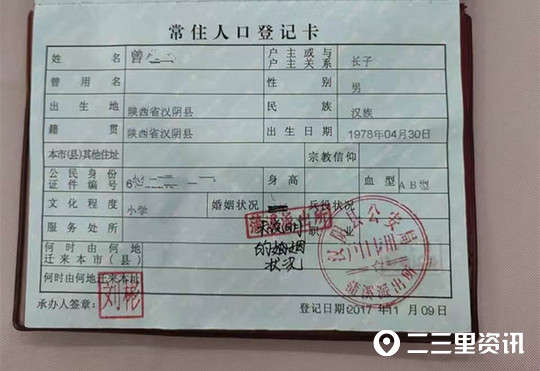 常住人口登记卡
姓 名 曾 户主或与户主关系 长子
曾用名 性别 男
出生地 陕西省汉阴县 民族 汉族
籍贯 陕西省汉阴县 出生日期 1978年04月30日
本市(县)其他住址 宗教信仰
公民身份证件编号 6 身高 血型 AB型
文化程度 小学 婚姻状况 兵役状况
服务处所 职业
何时由何地迁来本市(县)
何时由何地迁来本址
蒲溪派出所
的婚姻
状况
汉阴县公安局
蒲溪派出所
承办人签章: 刘彬 登记日期:2017年11月09日
二三里资讯